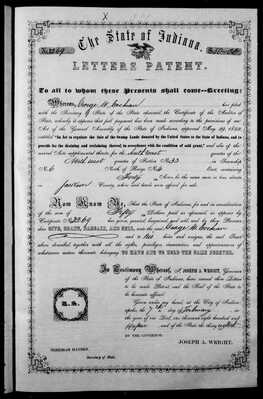 X
The State of Indiana,
No. 2269
LETTERS PATENT.
To all to whom these Presents shall come—Greeting:
Whereas, George W. Cochran has filed
with the Secretary of State of the State aforesaid, the Certificate of the Auditor of
State, whereby it appears that full payment has been made according to the provisions of an
Act of the General Assembly of the State of Indiana, approved May 29, 1852,
entitled "An Act to regulate the sale of the Swamp Lands donated by the United States to the State of Indiana, and to
provide for the draining and reclaiming thereof, in accordance with the condition of said grant," and also of the
several Acts supplemental thereto for the
quarter of Section No. 33 in Township
No. 6 of Range No. 4 East, containing
Forty Acres, be the same more or less, situate
in Jackson County, where said lands were offered for sale.
Now Know Ye, That the State of Indiana, for and in consideration
of the sum of Fifty Dollars paid as referenced in
Certificate No. 2269 has given, granted, bargained and sold, and by these Presents
does GIVE, GRANT, BARGAIN, AND SELL, unto the said George W. Cochran
and to his heirs and assigns the said Tract
above described together with all the rights, privileges, immunities, and appurtenances of
whatsoever nature thereunto belonging, TO HAVE AND TO HOLD THE SAME FOREVER.
In Testimony Whereof, I, JOSEPH A. WRIGHT, Governor
of the State of Indiana, have caused these Letters
to be made Patent, and the Seal of the State to
be hereunto affixed.
L. S.
Given under my hand, at the City of Indian-
apolis, the 7th day of February in
the year of our Lord, one thousand eight hundred and
and of the State the thirty eighth
BY THE GOVERNOR:
JOSEPH A. WRIGHT.
NEHEMIAH HAYDEN,
Secretary of State.